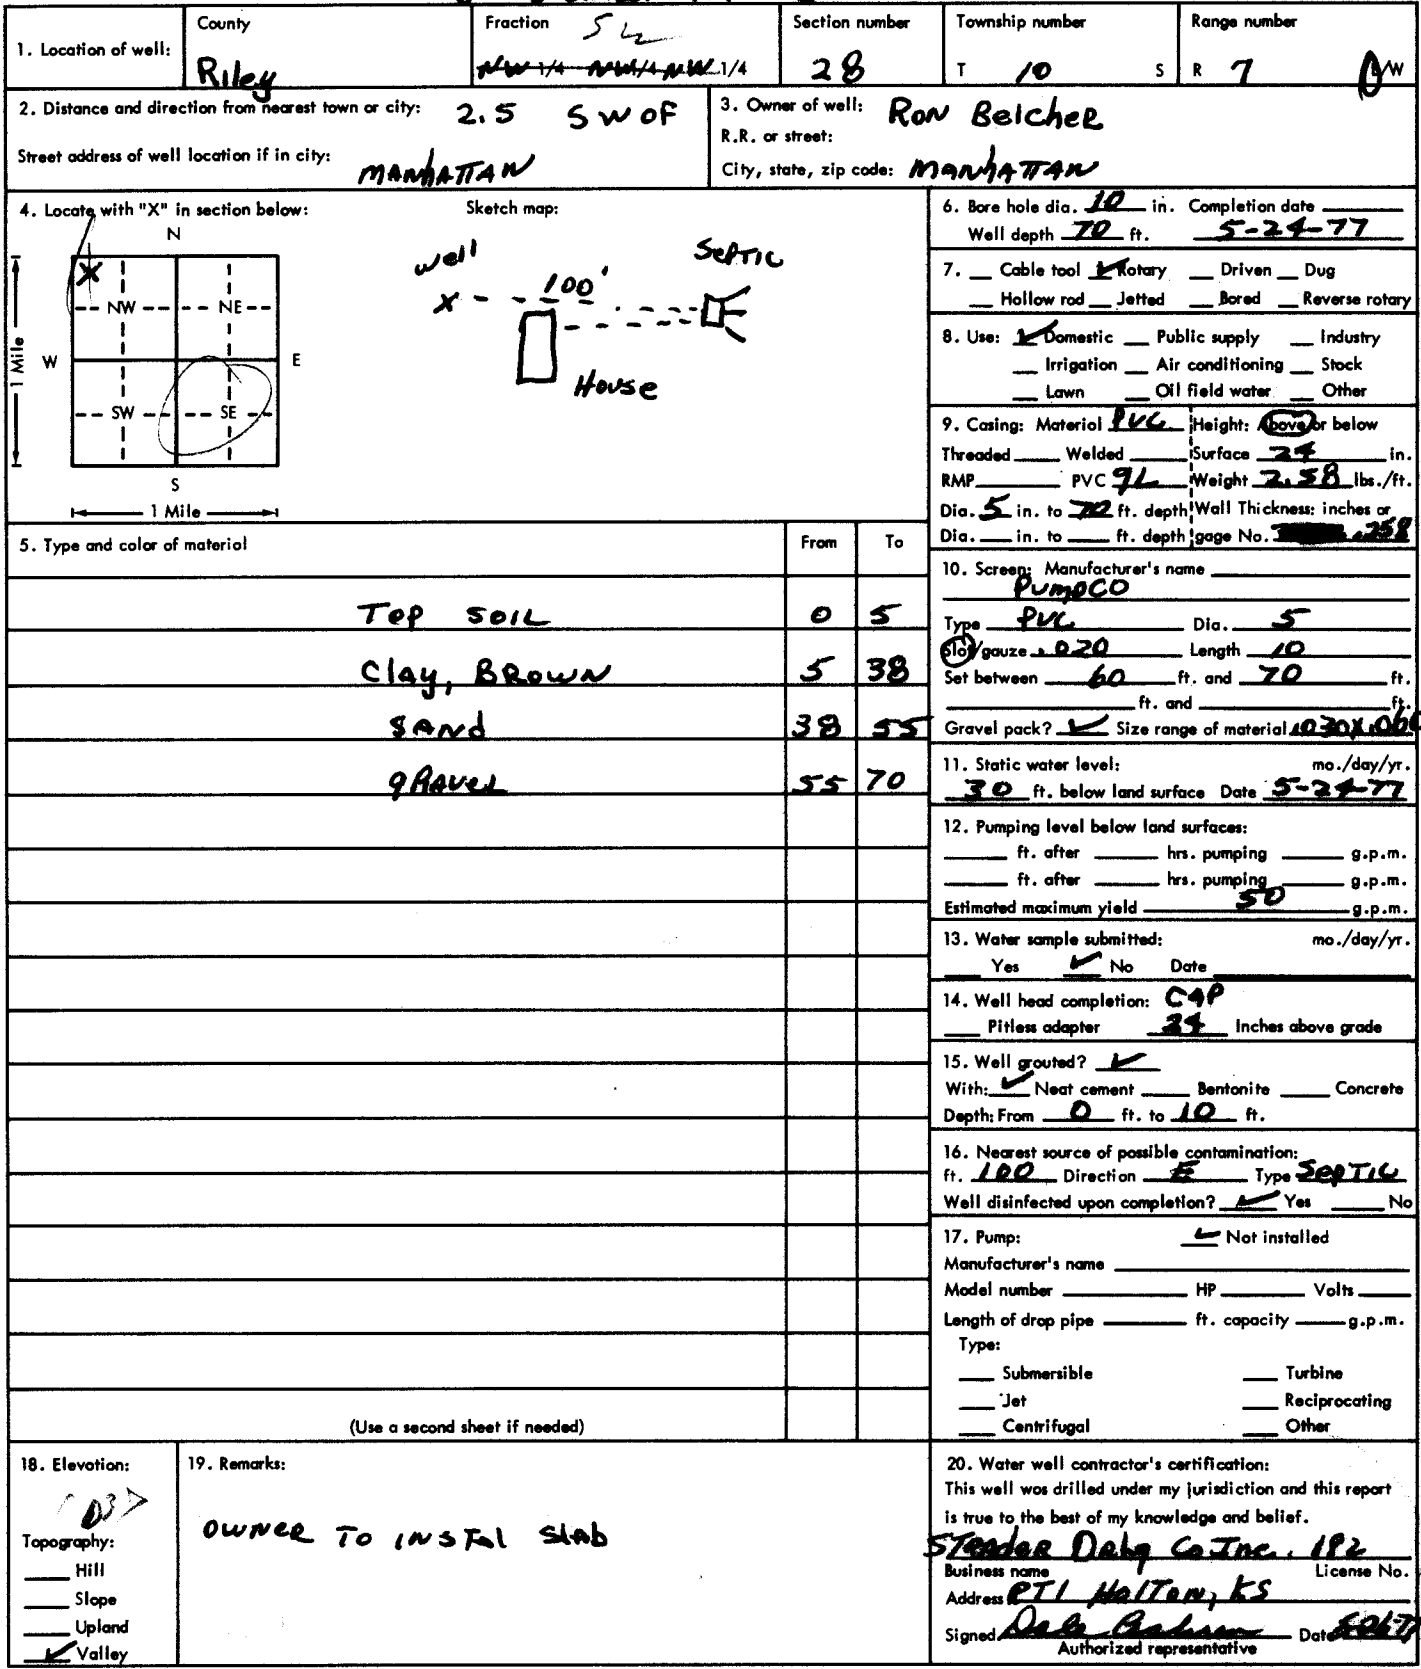 1. Location of well:
County
Riley
Fraction
NW 1/4 NW 1/4 NW 1/4
Section number
28
Township number
T 10 S
Range number
R 7 E/W
2. Distance and direction from nearest town or city: 2.5 SW OF
Street address of well location if in city:
MANHATTAN
3. Owner of well: RON BELCHER
R.R. or street:
City, state, zip code: MANHATTAN
4. Locate with "X" in section below:
Sketch map:
N
X
NW NE
W E
SW SE
S
1 Mile
1 Mile
well SEPTIC
100'
X
HOUSE
5. Type and color of material From To
TOP SOIL 0 5
Clay, BROWN 5 38
SAND 38 55
gRAVEL 55 70
(Use a second sheet if needed)
6. Bore hole dia. 10 in. Completion date
Well depth 70 ft. 5-24-77
7. Cable tool ✓ Rotary Driven Dug
Hollow rod Jetted Bored Reverse rotary
8. Use: ✓ Domestic Public supply Industry
Irrigation Air conditioning Stock
Lawn Oil field water Other
9. Casing: Material PVC Height: Above or below
Threaded Welded Surface 24 in.
RMP PVC gL Weight 2.58 lbs./ft.
Dia. 5 in. to 70 ft. depth Wall Thickness: inches or
Dia. in. to ft. depth gage No. .258
10. Screen: Manufacturer's name
PUMPCO
Type PVC Dia. 5
Slot/gauze .020 Length 10
Set between 60 ft. and 70 ft.
ft. and ft.
Gravel pack? ✓ Size range of material .030X.060
11. Static water level: mo./day/yr.
30 ft. below land surface Date 5-24-77
12. Pumping level below land surfaces:
ft. after hrs. pumping g.p.m.
ft. after hrs. pumping g.p.m.
Estimated maximum yield 50 g.p.m.
13. Water sample submitted: mo./day/yr.
Yes ✓ No Date
14. Well head completion: CAP
Pitless adapter 24 Inches above grade
15. Well grouted? ✓
With: ✓ Neat cement Bentonite Concrete
Depth: From 0 ft. to 10 ft.
16. Nearest source of possible contamination:
ft. 100 Direction E Type SEPTIC
Well disinfected upon completion? ✓ Yes No
17. Pump: ✓ Not installed
Manufacturer's name
Model number HP Volts
Length of drop pipe ft. capacity g.p.m.
Type:
Submersible Turbine
Jet Reciprocating
Centrifugal Other
18. Elevation:
Topography:
Hill
Slope
Upland
✓ Valley
19. Remarks:
OWNER TO INSTAL SLAB
20. Water well contractor's certification:
This well was drilled under my jurisdiction and this report
is true to the best of my knowledge and belief.
STRADER DRLG CO INC. 182
Business name License No.
Address RT1 HOLTON, KS
Signed Dale Date
Authorized representative